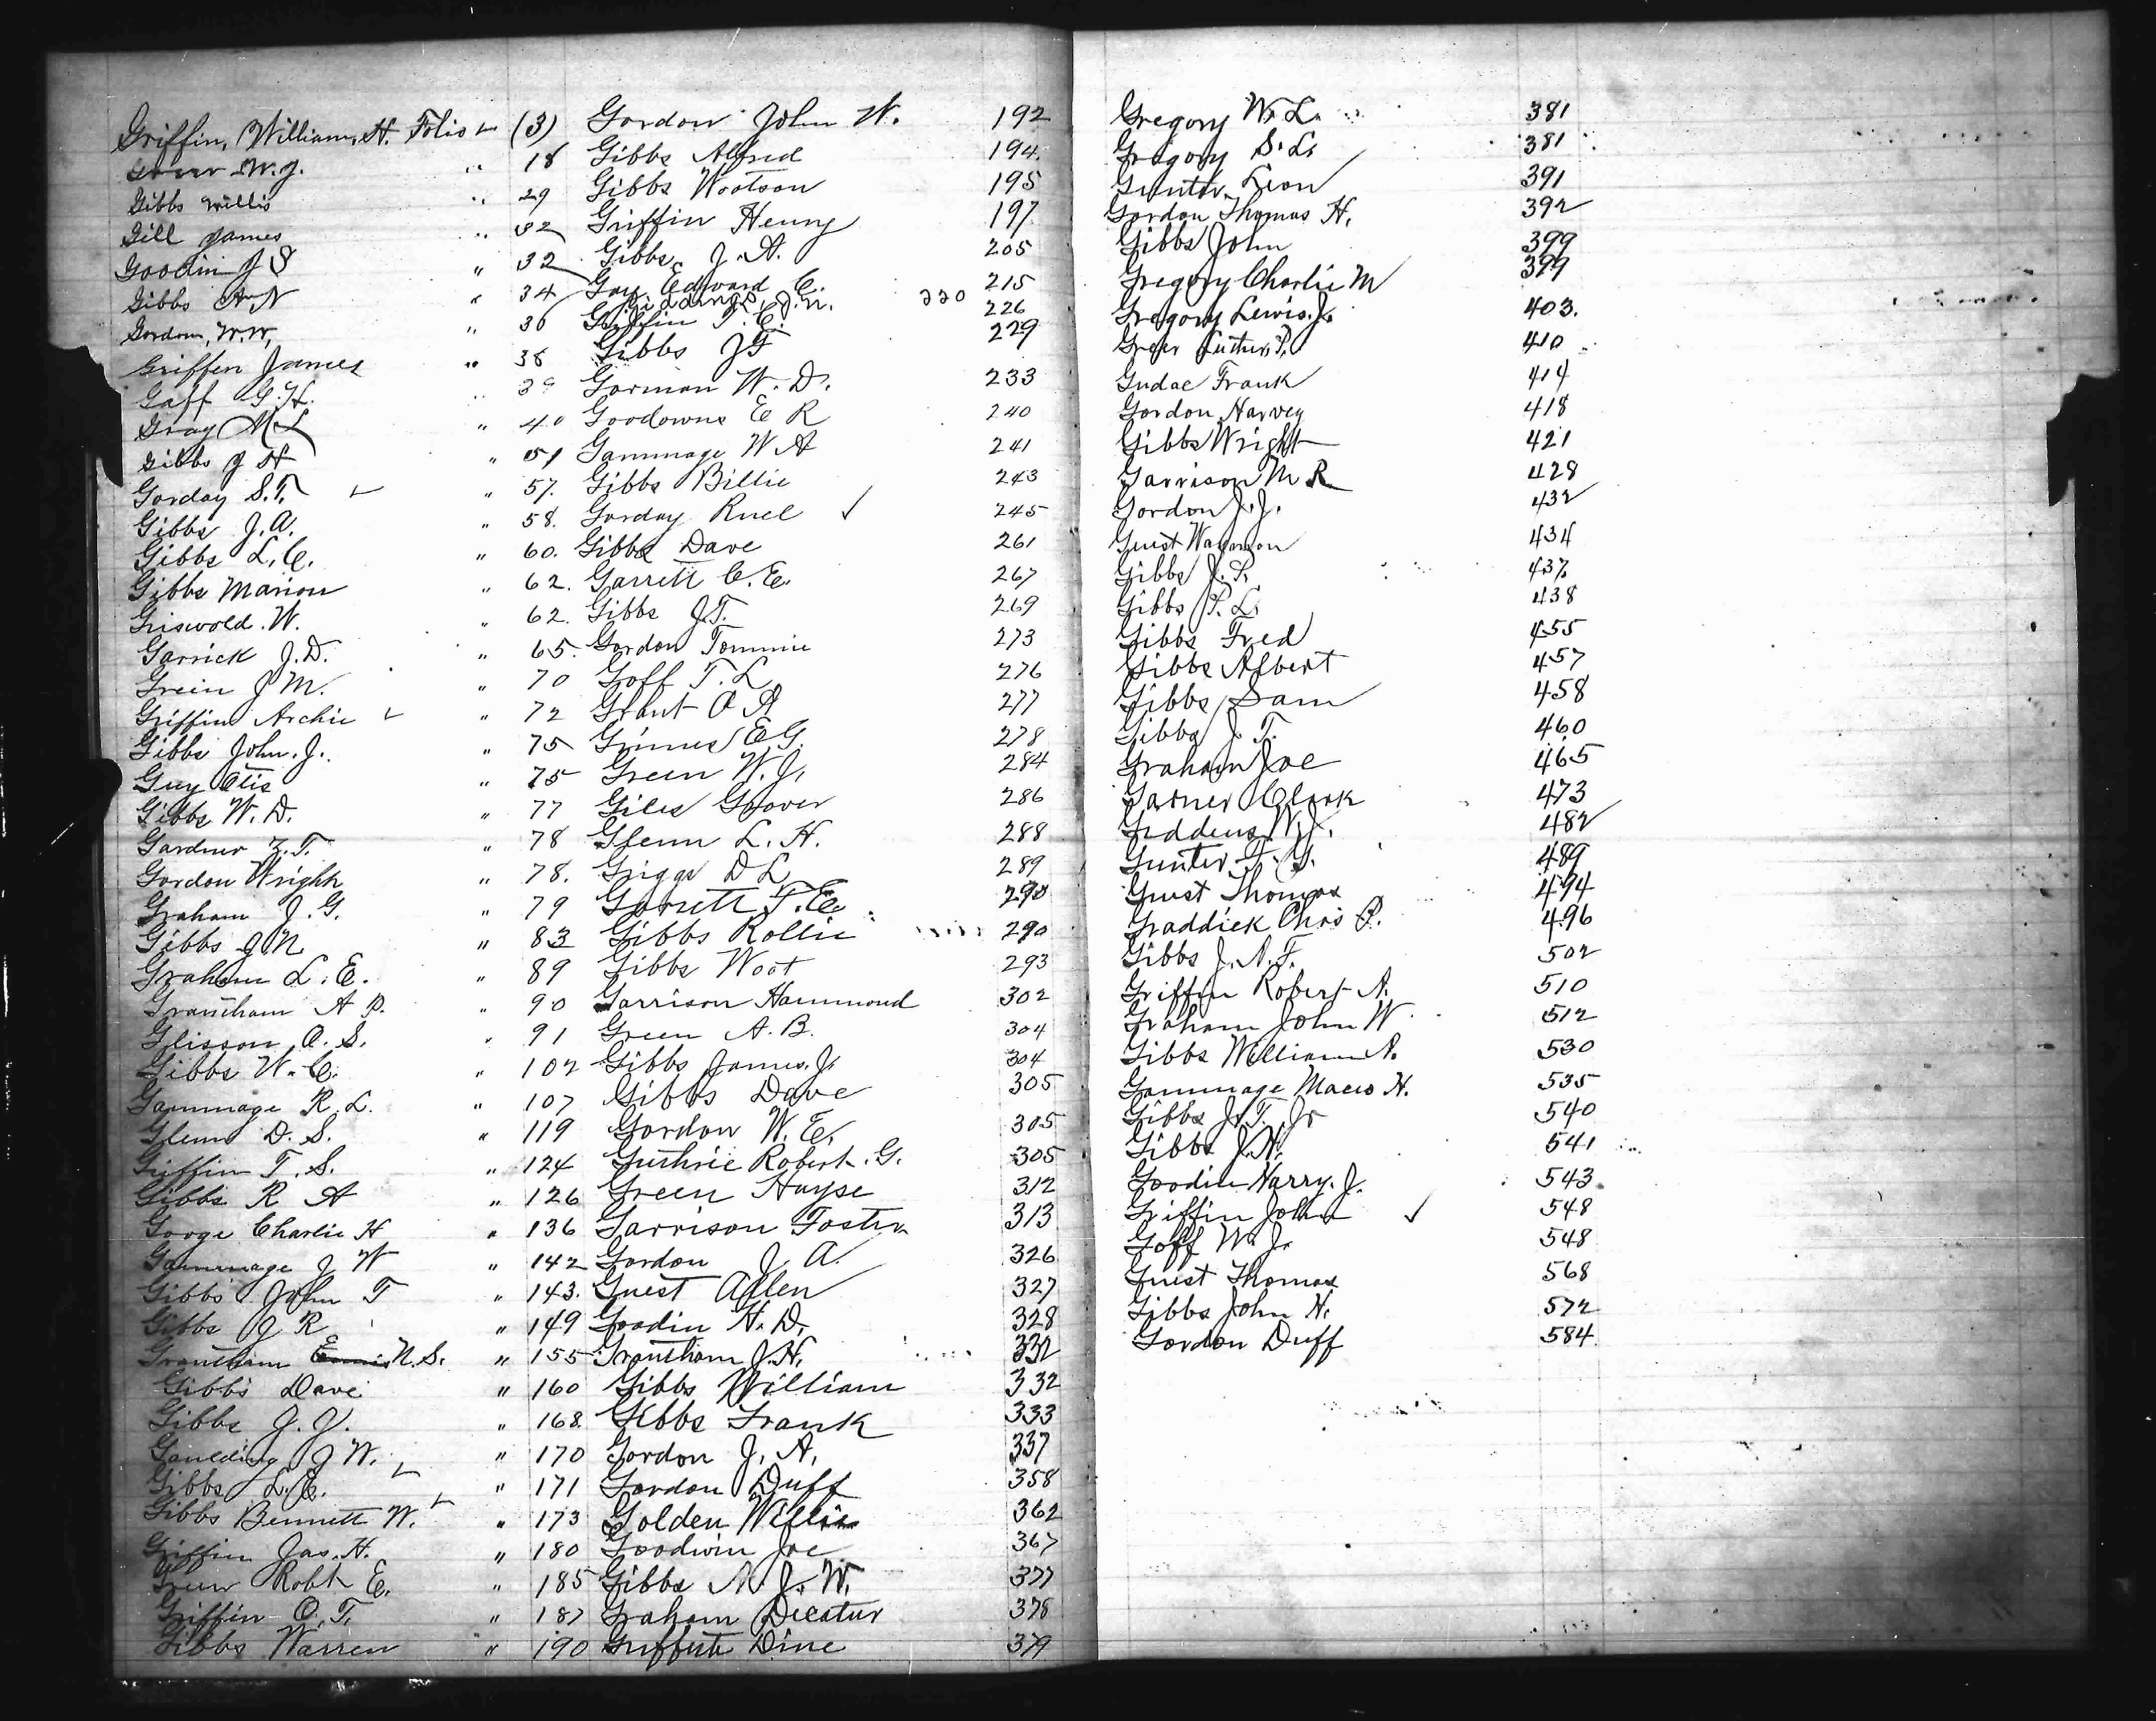 Griffin, William, H. Folio (3)
W. J. " 18
Gibbs Willis " 29
Gill James " 32
Goodin J S " 32
Gibbs A. N " 34
Gordon, W. W, " 36
Griffin James " 38
Gaff G. H. " 39
Gray M L " 40
Gibbs J H " 51
Gorday S. T. " 57.
Gibbs J. A. " 58.
Gibbs L. C. " 60.
Gibbs Marion " 62.
Griswold. W. " 62.
Garrick J. D. " 65.
Grein J M. " 70
Griffin Archie " 72
Gibbs John. J. " 75
Guy Otis " 75
Gibbs W. D. " 77
Gardner Z. T. " 78
Gordon Wright " 78.
Graham J. G. " 79
Gibbs J. N " 83
Graham L. E. " 89
Grantham A P. " 90
Glisson O. S. " 91
Gibbs W. C. " 102
Gammage R. L. " 107
Glenn D. S. " 119
Griffin T. S. " 124
Gibbs R A " 126
Googe Charlie H " 136
Gammage J W " 142
Gibbs John T " 143.
Gibbs J R " 149
Grantham N. S. " 155
Gibbs Dave " 160
Gibbs J. J. " 168.
Gaulding J W. " 170
Gibbs L. C. " 171
Gibbs Bennett W. " 173
Griffin Jas. H. " 180
Green Robt E. " 185
Griffin O. T. " 187
Gibbs Warren " 190
Gordon John W. 192
Gibbs Alfred 194.
Gibbs Wootson 195
Griffin Henry 197
Gibbs J. A. 205
Gay Edward C. 215
Giddings, J. N. 220
Griffin T. C. 226
Gibbs J T 229
Gorman W. D. 233
Goodowns E R 240
Gammage W A 241
Gibbs Billie 243
Gorday Ruel ✓ 245
Gibbs Dave 261
Garrett C. E. 267
Gibbs J. T. 269
Gordon Tommie 273
Goff T. L 276
Grant O A 277
Grimes E G. 278
Green W. J. 284
Giles Grover 286
Glenn L. H. 288
Griggs D L 289
Garrett T. E. 290
Gibbs Rollie 290
Gibbs Woot 293
Garrison Hammond 302
Green A. B. 304
Gibbs James. J. 304
Gibbs Dave 305
Gordon W. E. 305
Guthrie Robert. G. 305
Green Hayse 312
Garrison Foster 313
Gordon J. A. 326
Guest Allen 327
Goodin H. D. 328
Grantham J. H. 332
Gibbs William 332
Gibbs Frank 333
Gordon J. A. 337
Gordon Duff 358
Golden Willie 362
Goodwin Joe 367
Gibbs N. J. W. 377
Graham Decatur 378
Griffith Dine 379
Gregory W. L. 381
Gregory S. L. 381
Gunter Leon 391
Gordon Thomas H. 392
Gibbs John 399
Gregory Charlie M 399
Gregory Lewis. J. 403.
Greer Luther P. 410
Gudae Frank 414
Gordon Harvey 418
Gibbs Wright 421
Garrison M R. 428
Gordon J. J. 432
Guest Waymon 434
Gibbs J. S. 437
Gibbs P. L. 438
Gibbs Fred 455
Gibbs Albert 457
Gibbs Sam 458
Gibbs J. T. 460
Graham Joe 465
Garner Clark 473
Giddens W. J. 482
Gunter T. G. 489
Guest Thomas 494
Graddick Chris P. 496
Gibbs J. N. F. 502
Griffin Robert A. 510
Graham John W 512
Gibbs William A. 530
Gammage Maceo H. 535
Gibbs J. T. Jr 540
Gibbs J. H. 541
Goodin Harry. J. 543.
Griffin John ✓ 548
Goff W. J. 548
Guest Thomas 568
Gibbs John H. 572
Gordon Duff 584.